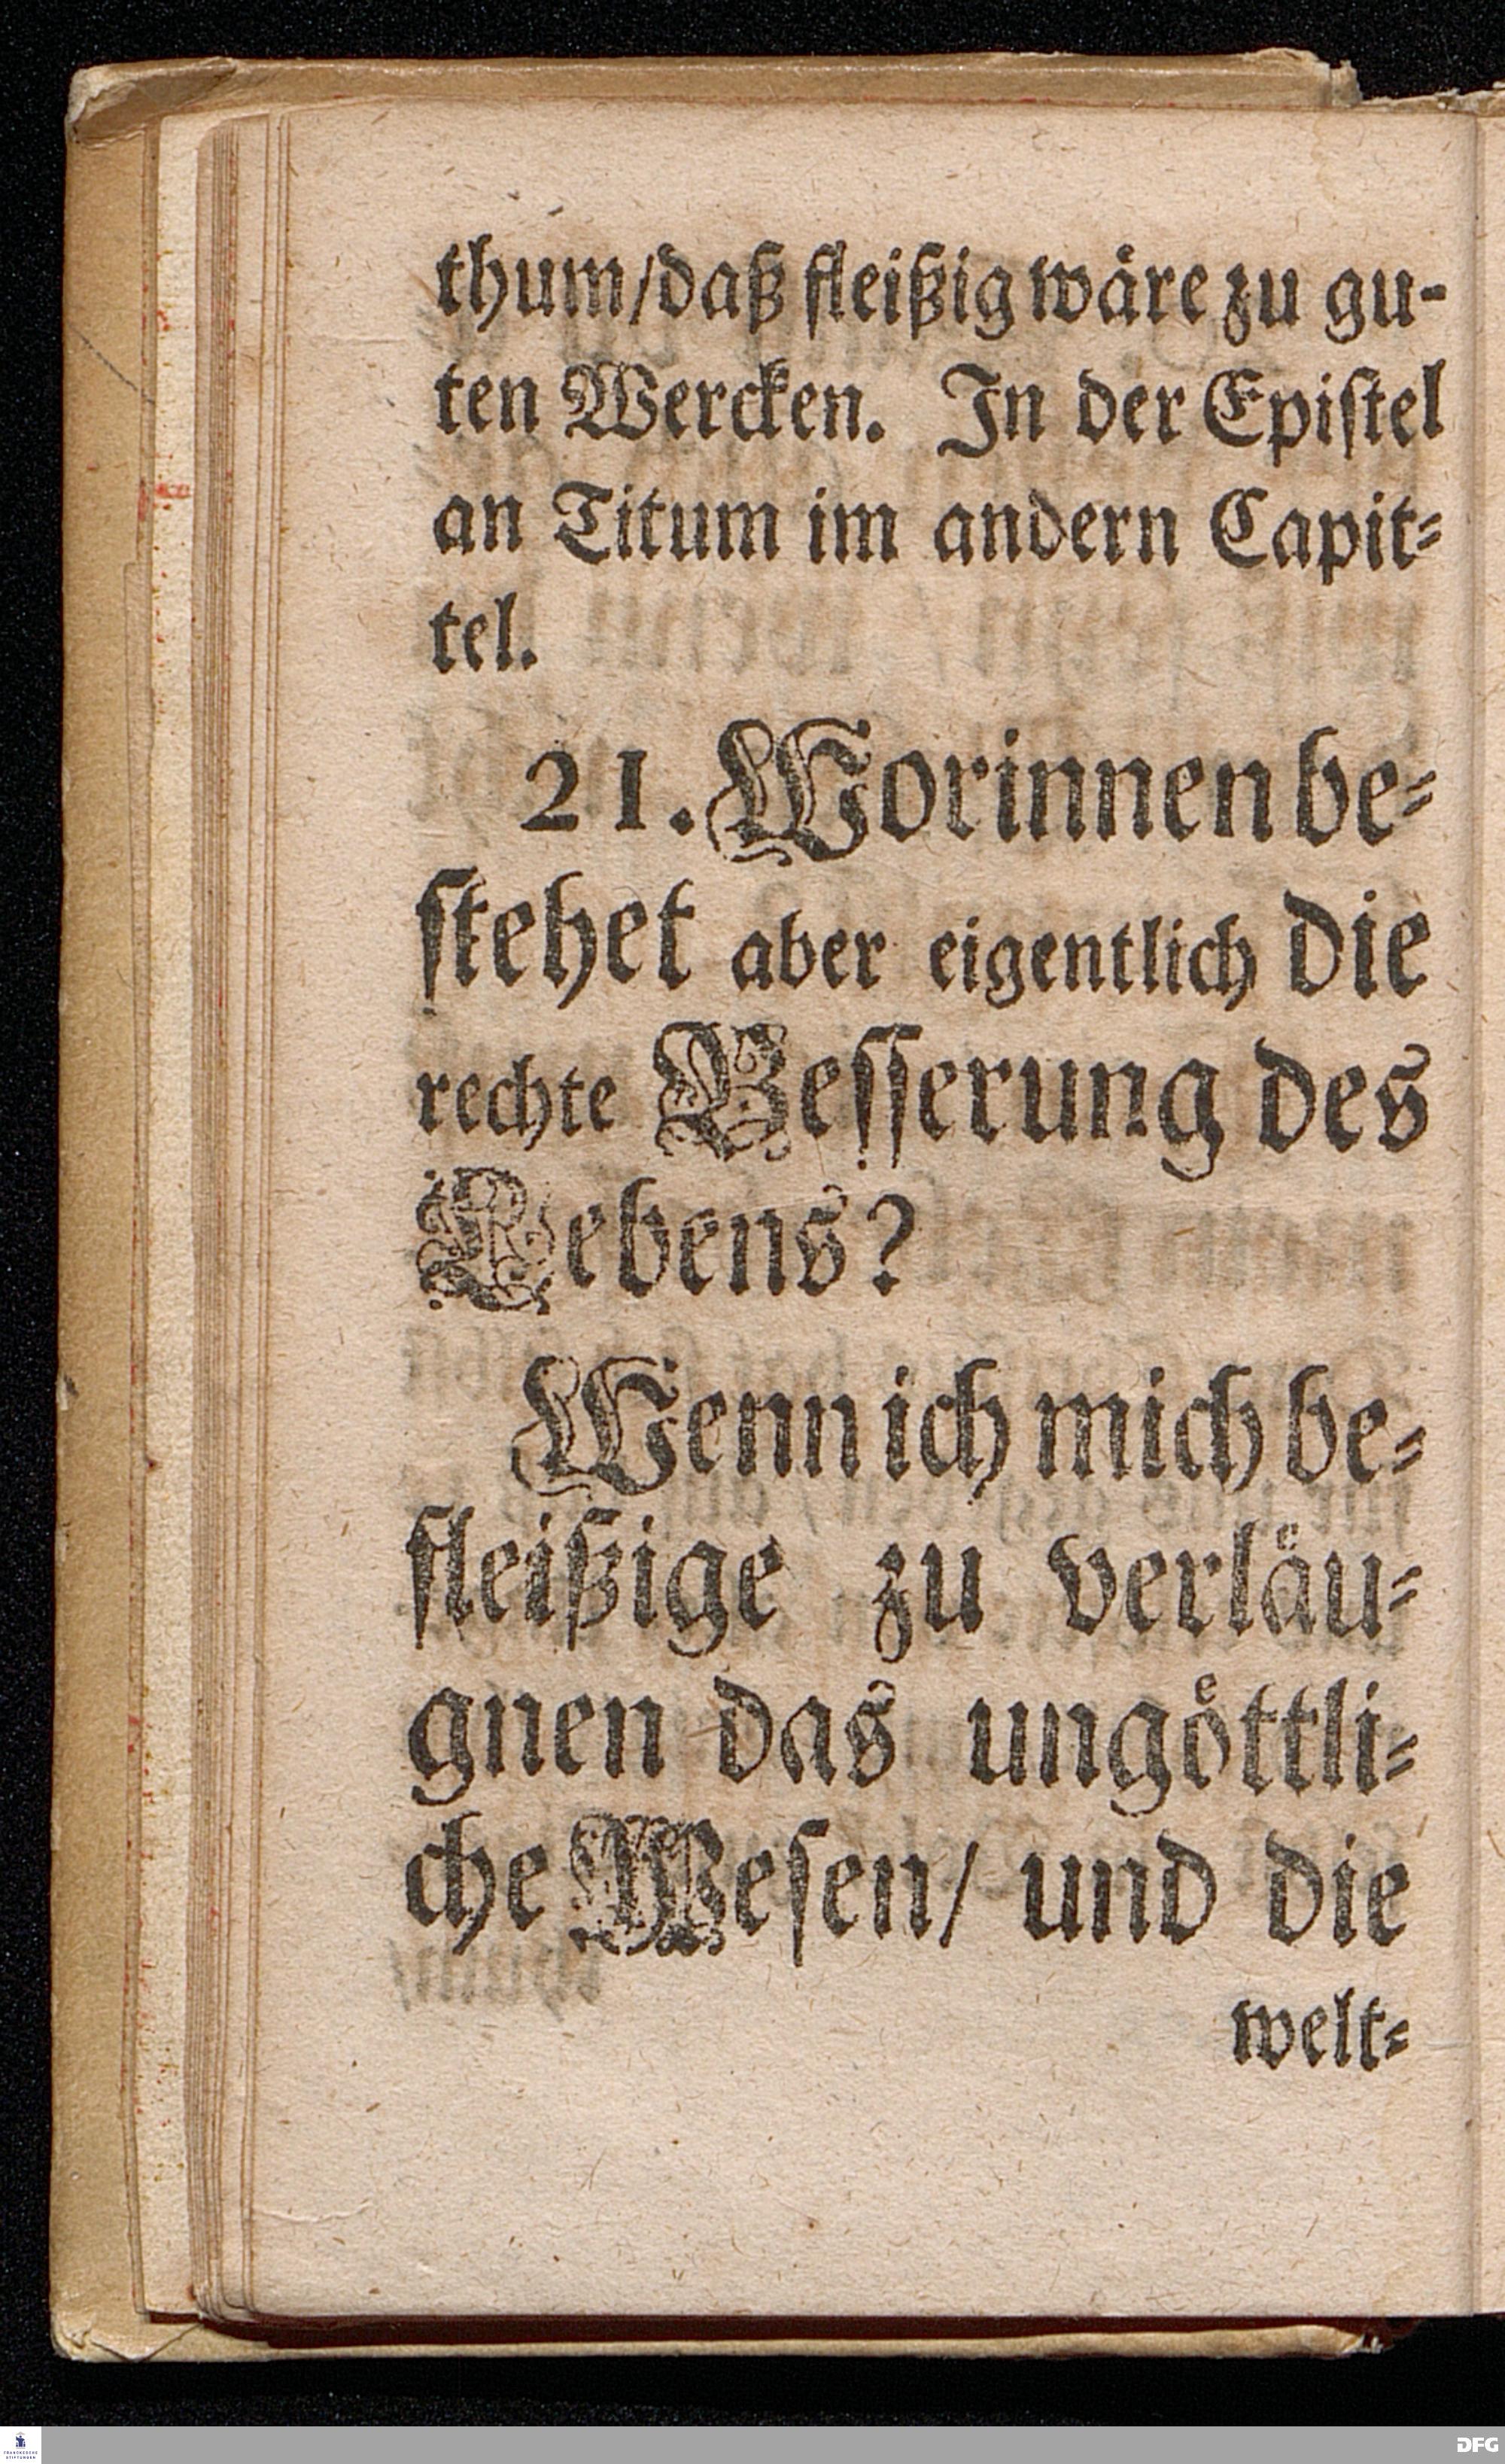 thum/daß fleißig wäre zu gu-
ten Wercken. In der Epistel
an Titum im andern Capit-
tel.
21. Worinnen be-
stehet aber eigentlich die
rechte Besserung des
Lebens?
Wenn ich mich be-
fleißige zu verläu-
gnen das ungöttli-
che Wesen/ und die
welt-
FRANCKESCHE STIFTUNGEN
DFG